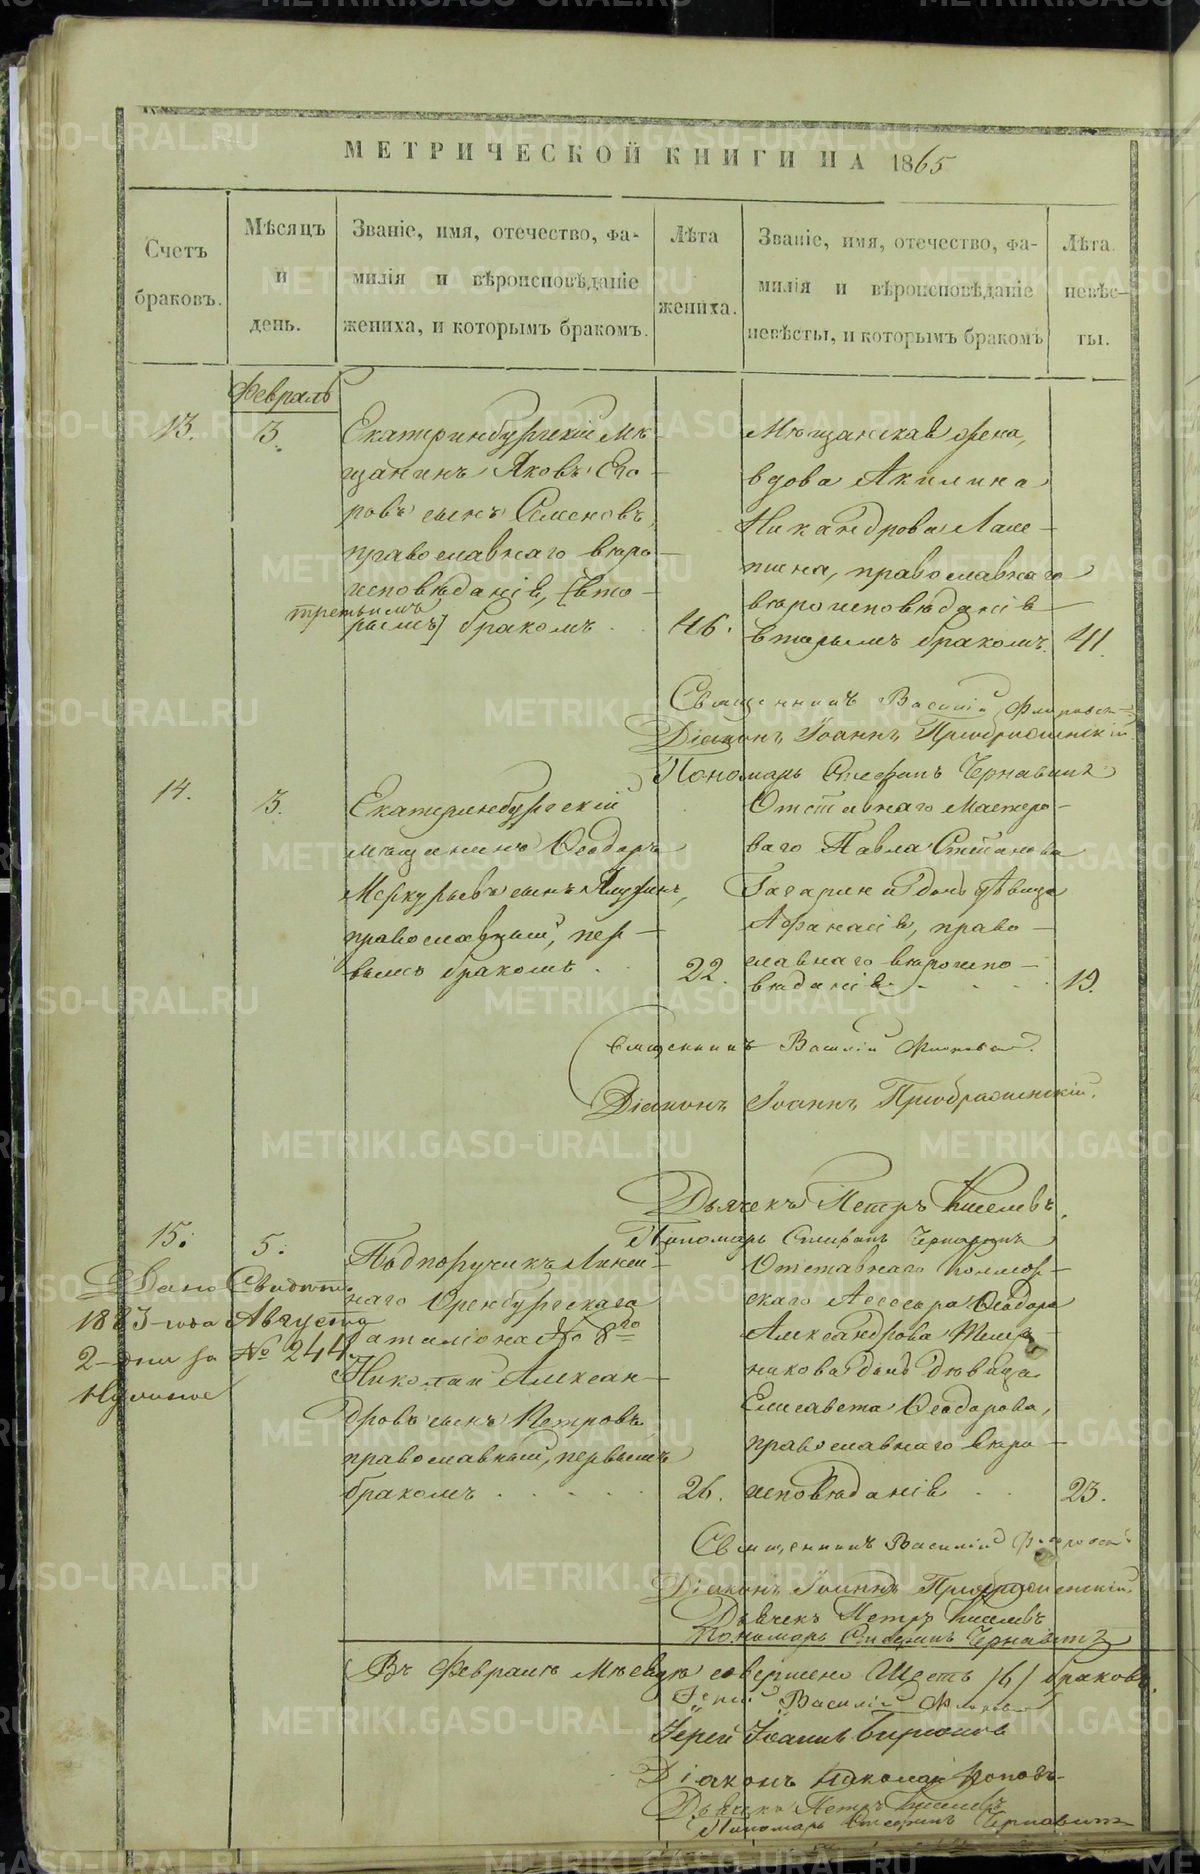 МЕТРИЧЕСКОЙ КНИГИ НА 1865
Счетъ браковъ.
Мѣсяцъ и день.
Званіе, имя, отечество, фа-
милія и вѣроисповѣданіе
жениха, и которымъ бракомъ.
Лѣта жениха.
Званіе, имя, отечество, фа-
милія и вѣроисповѣданіе
невѣсты, и которымъ бракомъ
Лѣта невѣс-
ты.
Февраль
13.
3.
Екатеринбургскій мѣ-
щанинъ Яковъ Его-
ровъ сынъ Семеновъ,
православнаго вѣро-
исповѣданія, [вто-
третьимъ
рымъ] бракомъ
46.
Мѣщанская жена,
вдова Акилина
Никандрова
православнаго
вѣроисповѣданія
вторымъ бракомъ.
41.
Священникъ Василій
Діаконъ Іоаннъ Преображенскій
Пономарь Стефанъ Чернавинъ
14.
3.
Екатеринбургскій
мѣщанинъ Ѳеодоръ
Меркурьевъ сынъ
православный, пер-
вымъ бракомъ
22.
Отставнаго мастеро-
ваго Павла Степанова
Гагарина дочь дѣвица
Афанасія, право-
славнаго вѣроиспо-
вѣданія
19.
Священникъ Василій
Діаконъ Іоаннъ Преображенскій.
Дьячекъ Петръ Киселевъ.
Пономарь Стефанъ Чернавинъ
15.
5.
Дано Свидѣт.
1883-года Августа
2-дня за № 244.
Подпоручикъ Линей-
наго Оренбургскаго
баталіона № 8го
Николай Алексан-
дровъ сынъ Петровъ,
православный, первымъ
бракомъ
26.
Отставнаго Коллеж-
скаго Ассесора Ѳеодора
Александрова
никова дочь дѣвица
Елисавета Ѳеодорова,
православнаго вѣро-
исповѣданія
23.
Священникъ Василій
Діаконъ Іоаннъ Преображенскій.
Дьячекъ Петръ Киселевъ
Пономарь Стефанъ Чернавинъ
Въ Февралѣ мѣсяцѣ совершено Шесть /6/ браковъ.
Іерей Василій
Іерей Іоаннъ
Діаконъ Николай Поповъ
Дьячекъ Петръ Киселевъ
Пономарь Стефанъ Чернавинъ
METRIKI.GASO-URAL.RU